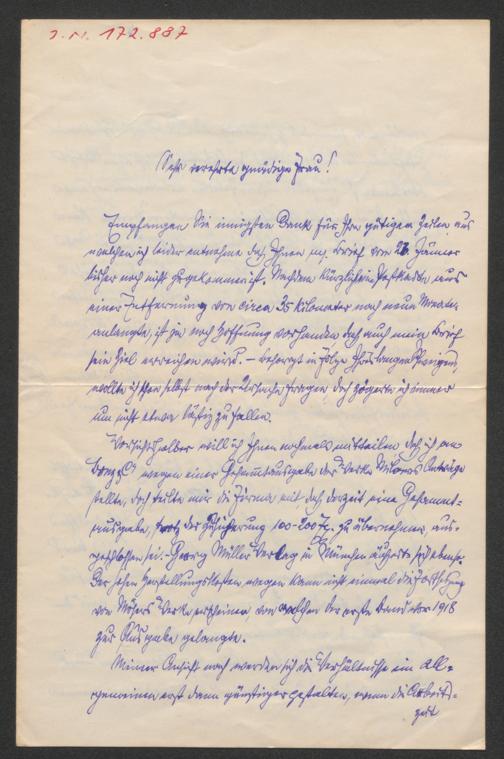 J.N. 172.887
Sehr verehrte gnädige Frau!
Empfangen Sie innigsten Dank für Ihre gütigen Zeilen aus
welchen ich leider entnehme daß Ihnen m. Brief vom 28. Jänner
bisher noch nicht zugekommen ist. Nachdem kürzlich ein Postkarte aus
einer Entfernung von circa 35 Kilometer nach neun Monaten
anlangte, ist ja noch Hoffnung vorhanden daß auch mein Brief
sein Ziel erreichen wird. – besorgt in Folge Ihres langen Schweigens,
wollte ich schon selbst nach der Ursache fragen, doch zögerte ich immer
um nicht etwa lästig zu fallen.
Vorsichtshalber will ich Ihnen nochmals mitteilen daß ich an
wegen einer Gesammtausgabe der Werke Anträge
stellte, doch teilte mir die Firma mit daß derzeit eine Gesammt-
ausgabe, trotz der Zusicherung 100-200 Ex. zu übernehmen, aus-
geschlossen sei. – Georg Müller Verlag in München äußerte sich ebenso.
Der hohen Herstellungskosten wegen kann nicht einmal die Fortsetzung
von Mösers Werke erscheinen, von welchen der erste Band vor 1918
zur Ausgabe gelangte.
Meiner Ansicht nach werden sich die Verhältnisse im All-
gemeinen erst dann günstiger gestalten, wenn die Arbeits-
zeit